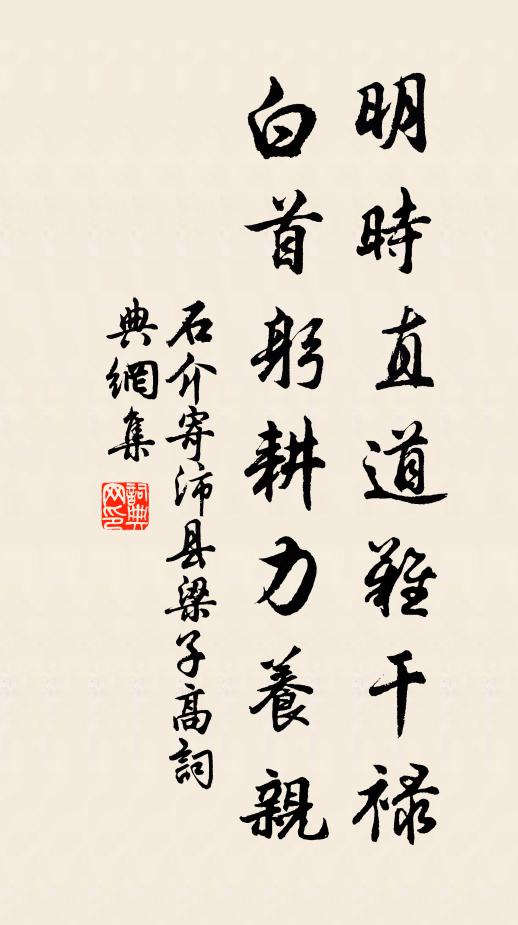 明時直道難干祿
白首躬耕力養親
石介寄沛县梁子高詞
典網集
詞典网印